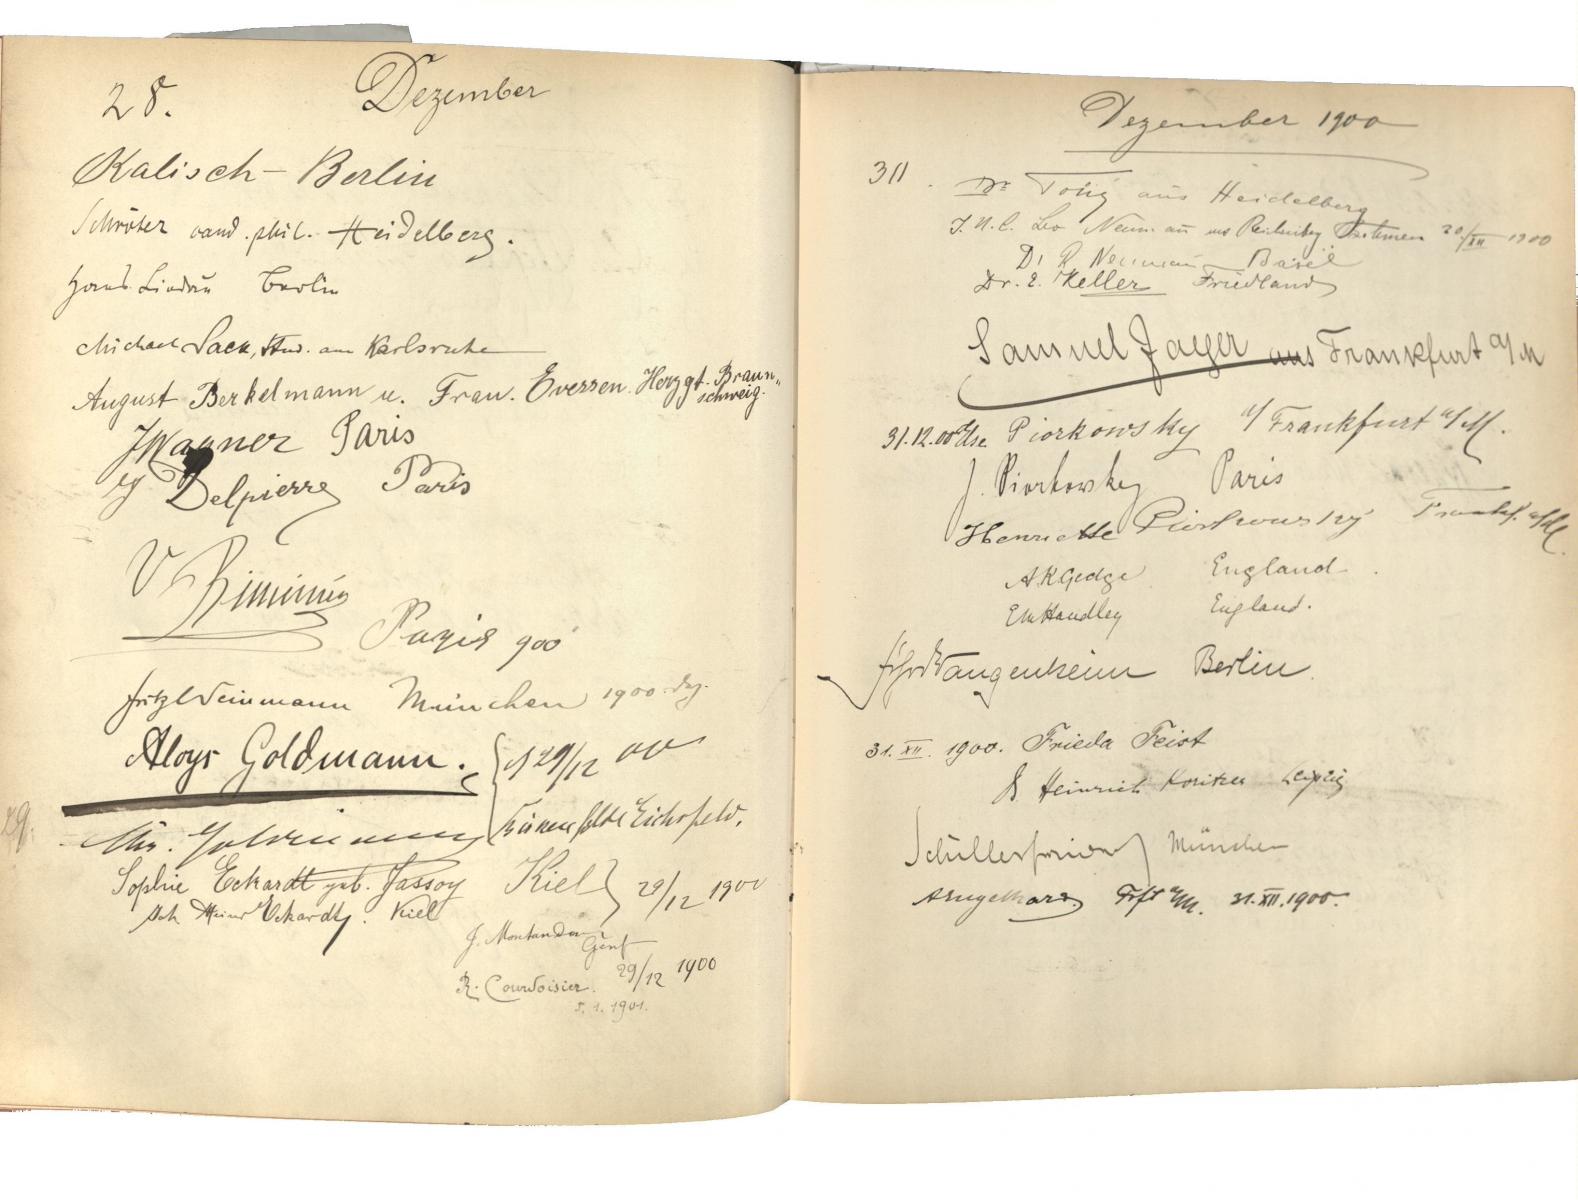 28. Dezember
Kalisch - Berlin
Schröter cand. phil. Heidelberg.
Hans Lindau Berlin
Michael Sack, stud. aus Karlsruhe
August Berkelmann u. Frau. Eversen. Herzgt. Braun„
schweig.
JWagner Paris
Delpierre Paris
V Rimining
Paris 900
Fritz Weinmann München 1900 Dez.
Aloys Goldmann. 29/12 00
29.
Eichsfeld.
Sophie Eckardt geb. Jassoy Kiel 29/12 1900
Heinr Eckardt. Kiel
J. Montandon
Genf
29/12 1900
R. Courvoisier.
5.1.1901.
Dezember 1900
30
Dr aus Heidelberg
Leo Neumann aus Böhmen 20/XII 1900
Dr R Neumann Basel
Dr. E. Keller Friedland
Samuel Jaeger aus Frankfurt a/M
31.12.00 Ilse Piorkowsky a/ Frankfurt a/M.
J. Piorkowsky Paris
Henriette Piorkowsky Frankf. a/M.
A.K.Gedge England.
EMHandley England.
Wangenheim Berlin.
31. XII. 1900. Frieda Feist
Heinrich Koritzer Leipzig
München
Frft a/M. 31.XII.1900.